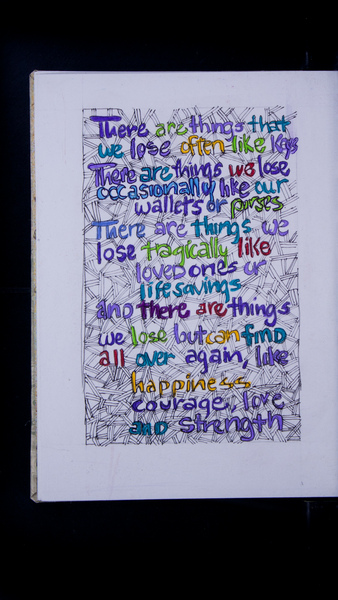 There are things that
we lose often like keys
There are things we lose
occasionally like our
wallets or purses
There are things we
lose tragically like
loved ones or
life savings
and there are things
we lose but can find
all over again, like
happiness
courage, love
and strength